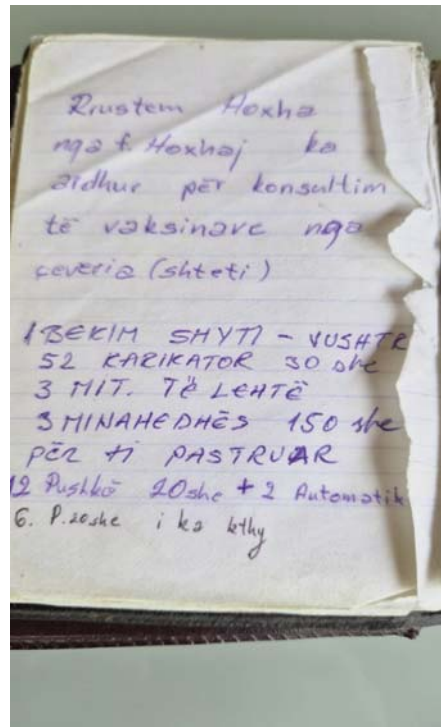 Rrustem Hoxha
nga f. Hoxhaj ka
ardhur për konsultim
të vaksinave nga
çeveria (shteti)
1 BEKIM SHYTI - VUSHTR
52 KARIKATOR 30 she
3 MIT. TË LEHTË
3 MINAHEDHËS 150 she
PËR TI PASTRUAR
12 Pushkë 20she + 2 Automatik
6. P.20she i ka kthy